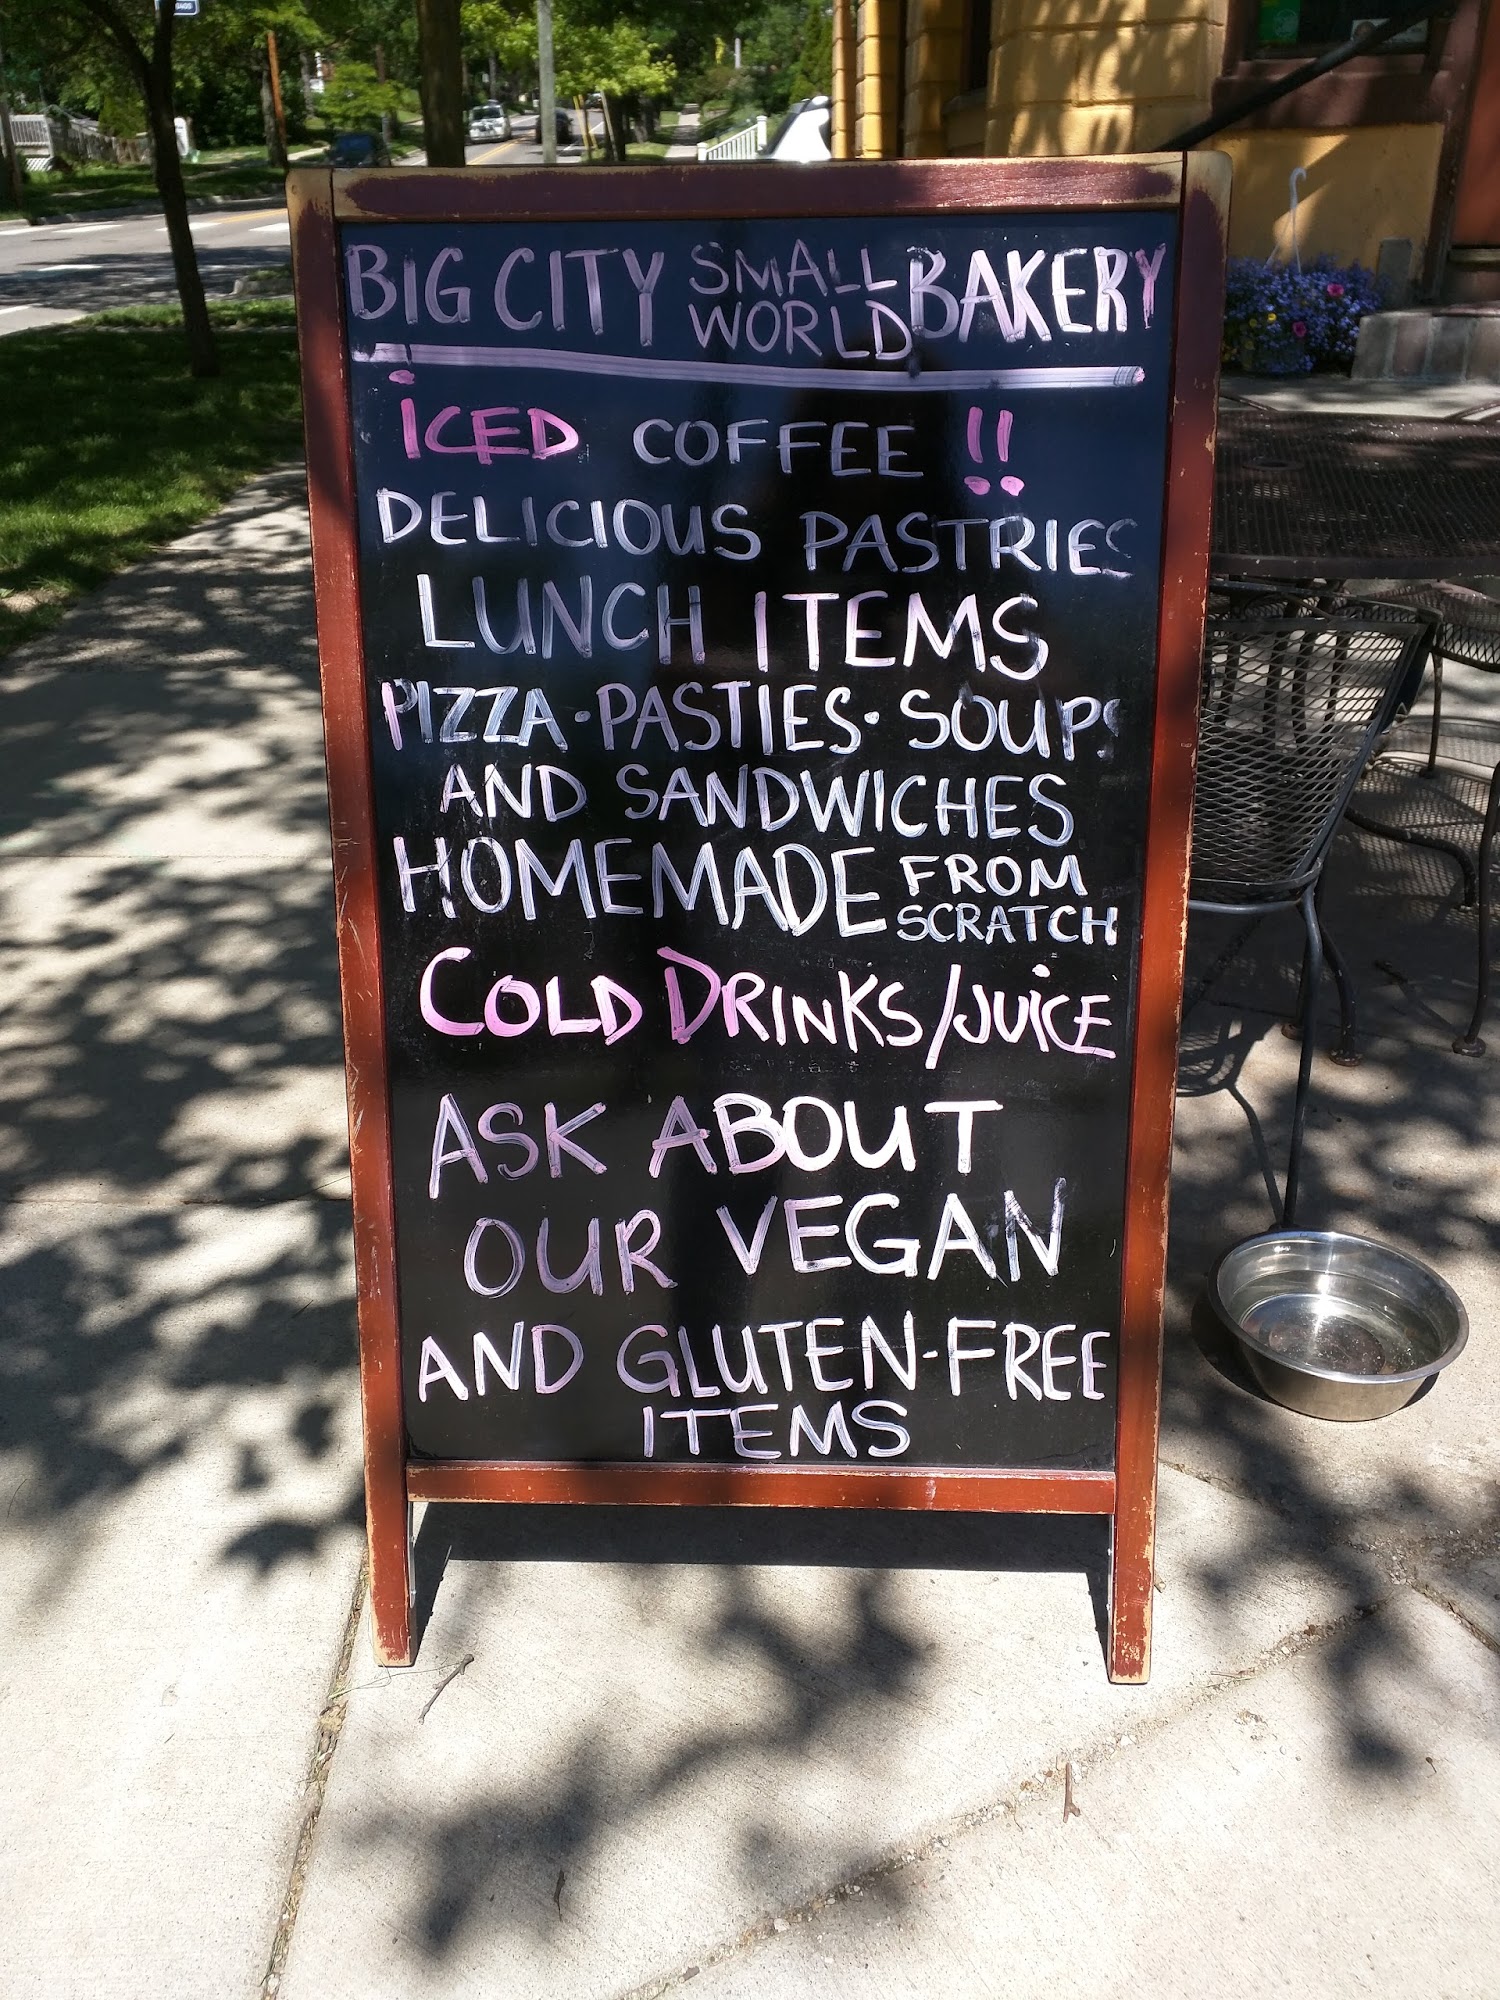 BIG CITY SMALL WORLD BAKERY
ICED COFFEE !!
DELICIOUS PASTRIES
LUNCH ITEMS
PIZZA · PASTIES · SOUPS
AND SANDWICHES
HOMEMADE FROM SCRATCH
COLD DRINKS/JUICE
ASK ABOUT
OUR VEGAN
AND GLUTEN-FREE
ITEMS